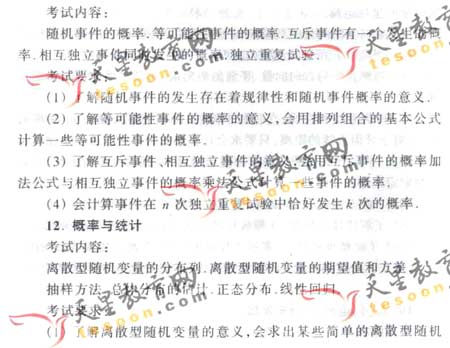 考试内容:
随机事件的概率.等可能性事件的概率.互斥事件有一个发生的概
率.相互独立事件同时发生的概率.独立重复试验.
考试要求:
(1)了解随机事件的发生存在着规律性和随机事件概率的意义.
(2)了解等可能性事件的概率的意义,会用排列组合的基本公式
计算一些等可能性事件的概率.
(3)了解互斥事件、相互独立事件的意义,会用互斥事件的概率加
法公式与相互独立事件的概率乘法公式计算一些事件的概率.
(4)会计算事件在 n 次独立重复试验中恰好发生 k 次的概率.
12. 概率与统计
考试内容:
离散型随机变量的分布列.离散型随机变量的期望值和方差.
抽样方法.总体分布的估计.正态分布.线性回归.
考试要求:
(1)了解离散型随机变量的意义,会求出某些简单的离散型随机
天星教育网
tesoon.com
天星教育网
tesoon.com
天星教育网
tesoon.com
天星教育网
tesoon.com
天星教育网
tesoon.com